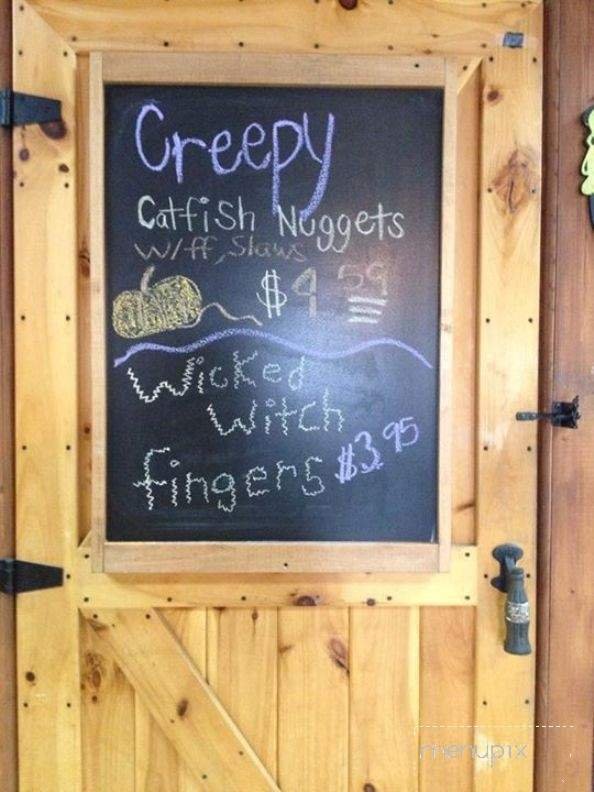 Creepy
Catfish Nuggets
w/ff, Slaws
$4 59
Wicked
Witch
fingers $3.95
menupix